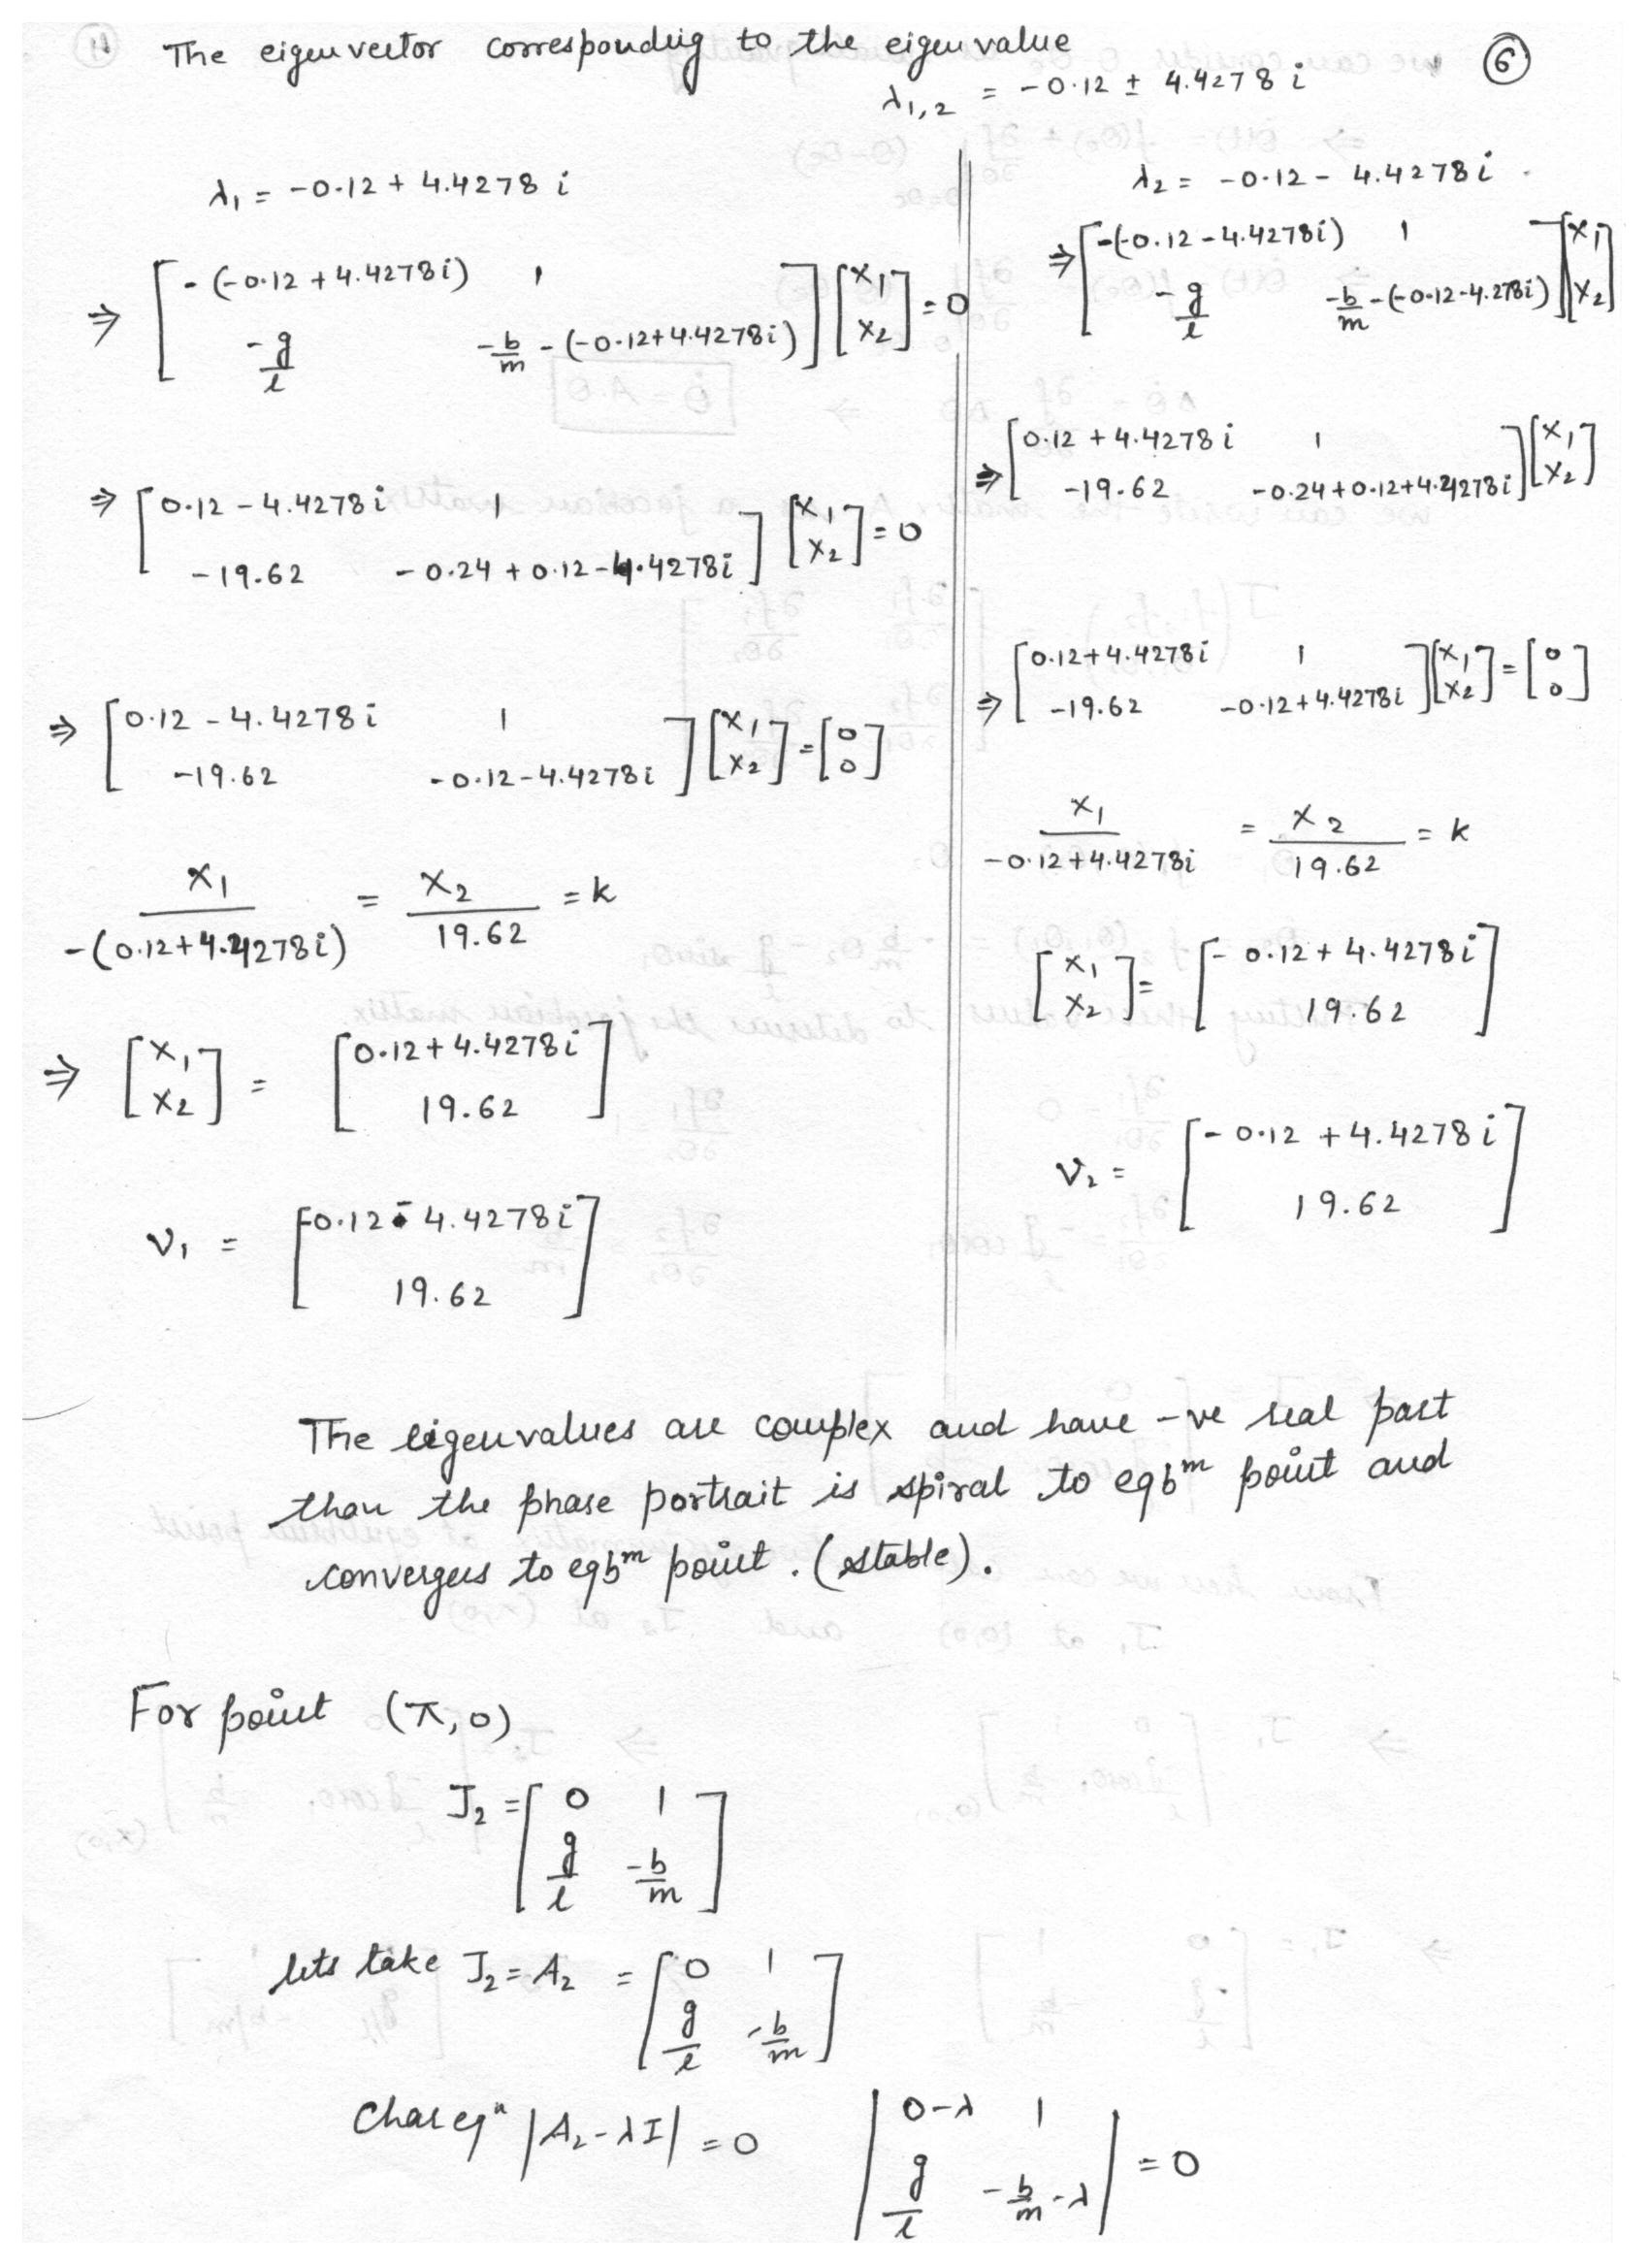 The eigenvector corresponding to the eigenvalue
λ1,2 = -0.12 ± 4.4278 i
6
λ1 = -0.12 + 4.4278 i
⇒ [ -(-0.12 + 4.4278i) 1
-g/l -b/m - (-0.12+4.4278i) ] [ x1 x2 ] = 0
⇒ [ 0.12 - 4.4278 i 1
-19.62 -0.24 + 0.12 - 4.4278i ] [ x1 x2 ] = 0
⇒ [ 0.12 - 4.4278 i 1
-19.62 -0.12-4.4278i ] [ x1 x2 ] = [ 0 0 ]
x1 / -(0.12+4.4278i) = x2 / 19.62 = k
⇒ [ x1 x2 ] = [ 0.12 + 4.4278 i
19.62 ]
v1 = [ -0.12 - 4.4278 i
19.62 ]
λ2 = -0.12 - 4.4278 i .
⇒ [ -(-0.12 - 4.4278i) 1
-g/l -b/m - (-0.12-4.278i) ] [ x1 x2 ]
⇒ [ 0.12 + 4.4278 i 1
-19.62 -0.24+0.12+4.4278i ] [ x1 x2 ]
⇒ [ 0.12+4.4278i 1
-19.62 -0.12+4.4278i ] [ x1 x2 ] = [ 0 0 ]
x1 / -0.12+4.4278i = x2 / 19.62 = k
[ x1 x2 ] = [ - 0.12 + 4.4278 i
19.62 ]
v2 = [ - 0.12 + 4.4278 i
19.62 ]
The eigenvalues are complex and have -ve real part
than the phase portrait is spiral to eqbm point and
converges to eqbm point . (stable).
For point (π,0)
J2 = [ 0 1
g/l -b/m ]
lets take J2 = A2 = [ 0 1
g/l -b/m ]
Char eqn |A2 - λI| = 0 | 0-λ 1
g/l -b/m - λ | = 0